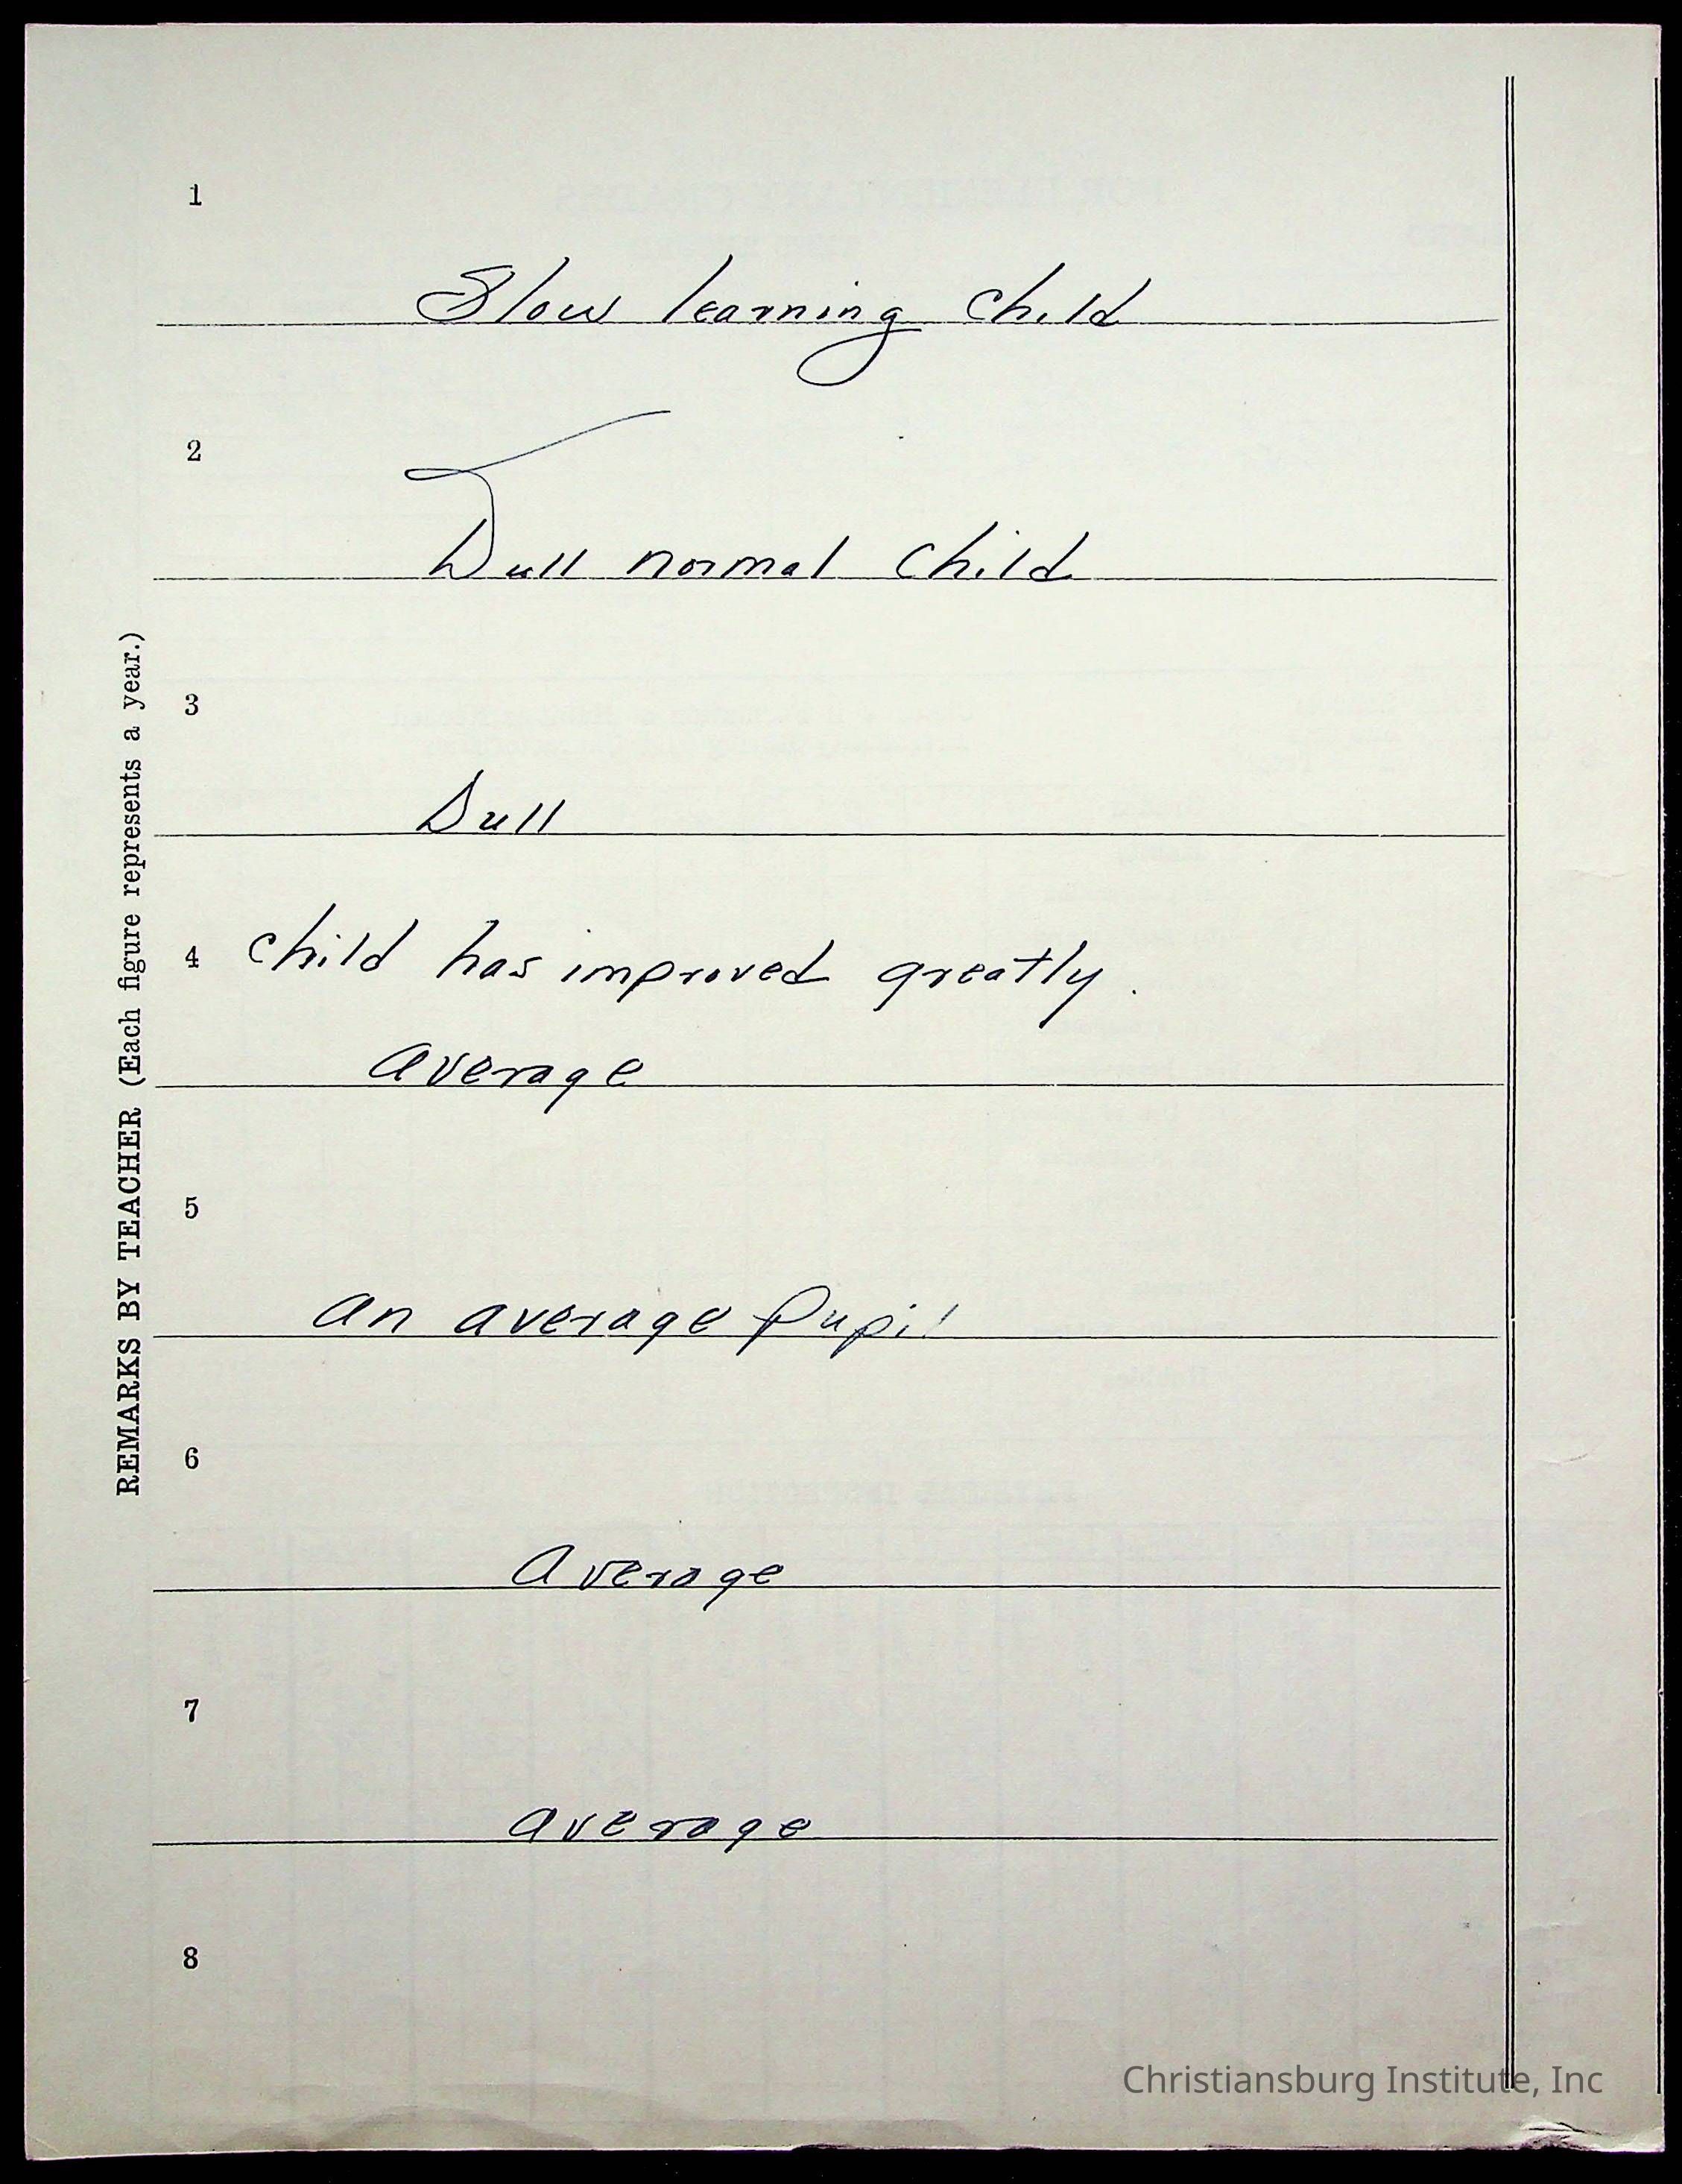 REMARKS BY TEACHER (Each figure represents a year.)
1
Slow learning child
2
Dull normal child
3
Dull
4 child has improved greatly.
average
5
an average pupil
6
Average
7
average
8
Christiansburg Institute, Inc